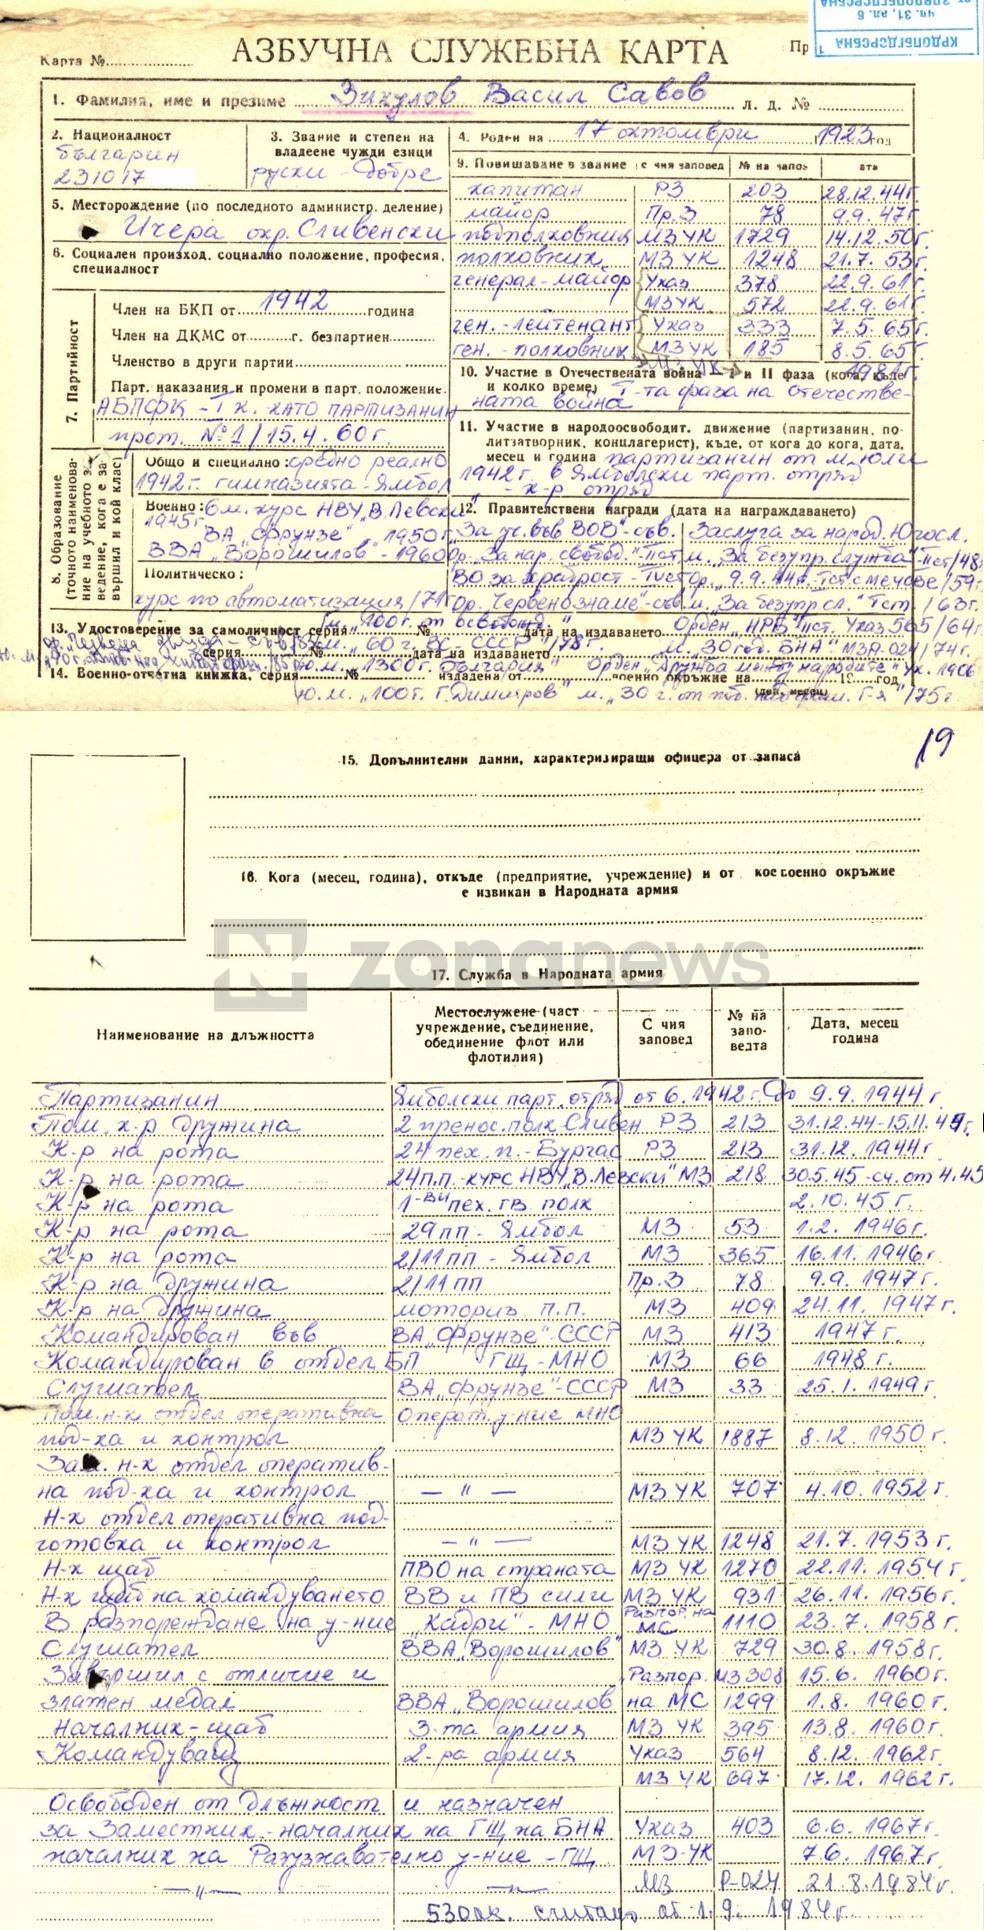 КРДОПБГДСРСБНА
чл. 31, ал. 6
АЗБУЧНА СЛУЖЕБНА КАРТА
Карта №
1. Фамилия, име и презиме Зикулов Васил Савов л. д. №
2. Националност
българин
231017
3. Звание и степен на владеене чужди езици
руски - добре
4. Роден на 17 октомври 1923 год
5. Месторождение (по последното администр. деление)
Ичера окр. Сливенски
6. Социален произход, социално положение, професия, специалност
7. Партийност
Член на БКП от 1942 година
Член на ДКМС от г. безпартиен
Членство в други партии
Парт. наказания и промени в парт. положение.
АБПФК - I к. като партизанин
прот. №1/15.4.60г.
8. Образование (точното наименование на учебното заведение, кога е завършил и кой клас)
Общо и специално: средно реално
1942г. гимназията - Ямбол
Военно: 6 м. курс НВУ "В. Левски"
1945г.
ВА "Фрунзе" 1950г.
ВВА "Ворошилов" - 1960
Политическо:
курс по автоматизация/71г
9. Повишаване в звание с чия заповед № на запов
капитан РЗ 203 28.12.44г.
майор Пр.З 78 9.9.47г.
подполковник МЗ УК 1729 14.12.50г.
полковник МЗ УК 1248 21.7.53г.
генерал-майор Указ 378 22.9.61г.
МЗ УК 572 22.9.61г.
ген.-лейтенант Указ 333 7.5.65г.
ген.-полковник МЗ УК 185 8.5.65г.
1981г.
10. Участие в Отечествената война - I и II фаза (кога, къде и колко време) I-та фаза на отечествената война
11. Участие в народоосвободит. движение (партизанин, политзатворник, концлагерист), къде, от кога до кога, дата, месец и година партизанин от м. юли
1942г. в Ямболски парт. отряд
к-р отряд
12. Правителствени награди (дата на награждаването)
"За уч. във ВОВ" - съв. Заслуга за народ. Югосл.
Ор. "За нар. свобода" II ст м. "За безупр. служба" II ст/48г
ВО за храброст - IV ст ор. "9.9.44г. I ст с мечове/59г
Ор. "Червено знаме" - съв м. "За безупр. сл." I ст/63г.
м. "100г. от освобожд." Орден "НРБ" II ст. Указ 565/64г
13. Удостоверение за самоличност серия № дата на издаването
серия № дата на издаването
м. "60 г. ВС СССР"/78г. м. "30 год. БНА" МЗР-024/74г.
м. "1300г. България" Орден "Дружба между народите" Ук. 1906
14. Военно-отчетна книжка, серия № издадена от военно окръжие на 19 год
(ден, месец)
Ю.м. "100г. Г. Димитров" м. "30 г. от поб. над фаш. Г-я"/75г
19
15. Допълнителни данни, характеризиращи офицера от запаса
16. Кога (месец, година), откъде (предприятие, учреждение) и от кое военно окръжие е извикан в Народната армия
zonanews
17. Служба в Народната армия
Наименование на длъжността Местослужене (част учреждение, съединение, обединение флот или флотилия) С чия заповед № на заповедта Дата, месец година
Партизанин Ямболски парт. отряд от 6.1942г. до 9.9.1944г.
Пом. к-р дружина 2 пренос. полк Сливен РЗ 213 31.12.44-15.11.44г.
К-р на рота 24 пех. п. - Бургас РЗ 213 31.12.1944г.
К-р на рота 24 п.п. - курс НВУ "В. Левски" МЗ 218 30.5.45 - сч. от 4.45
К-р на рота 1-ви пех. гв. полк 2.10.45г.
К-р на рота 29 пп - Ямбол МЗ 53 1.2.1946г.
К-р на рота 2/11 пп - Ямбол МЗ 365 16.11.1946г
К-р на дружина 2/11 пп Пр.З 78 9.9.1947г.
К-р на дружина моториз. п.п. МЗ 409 24.11.1947г.
Командирован във ВА "Фрунзе" - СССР МЗ 413 1947г.
Командирован в отдел БП ГЩ - МНО МЗ 66 1948г.
Слушател ВА "Фрунзе" - СССР МЗ 33 25.1.1949г.
Пом. н-к отдел оперативна Операт. у-ние МНО
под-ка и контрол МЗ УК 1887 8.12.1950г.
Зам. н-к отдел оператив-
на под-ка и контрол — " — МЗ УК 707 4.10.1952г.
Н-к отдел оперативна под-
готовка и контрол — " — МЗ УК 1248 21.7.1953г.
Н-к щаб ПВО на страната МЗ УК 1270 22.11.1954г.
Н-к щаб на командуването ВВ и ПВ сили МЗ УК 931 26.11.1956г.
В разпореждане на у-ние "Кадри" - МНО Разпор. на МС 1110 23.7.1958г.
Слушател ВВА "Ворошилов" МЗ УК 729 30.8.1958г.
Завършил с отличие и Разпор. МЗ 308 15.6.1960г.
златен медал ВВА "Ворошилов на МС 1299 1.8.1960г.
Началник-щаб 3-та армия МЗ УК 395 13.8.1960г.
Командуващ 2-ра армия Указ 564 8.12.1962г.
МЗ УК 697 17.12.1962г.
Освободен от длъжност и назначен
за Заместник-началник на ГЩ на БНА Указ 403 6.6.1967г.
началник на Разузнавателно у-ние - ГЩ МЗ-УК 7.6.1967г.
— " — — " — МЗ Р-024 21.8.1984г.
530ок. считано от 1.9.1984г.